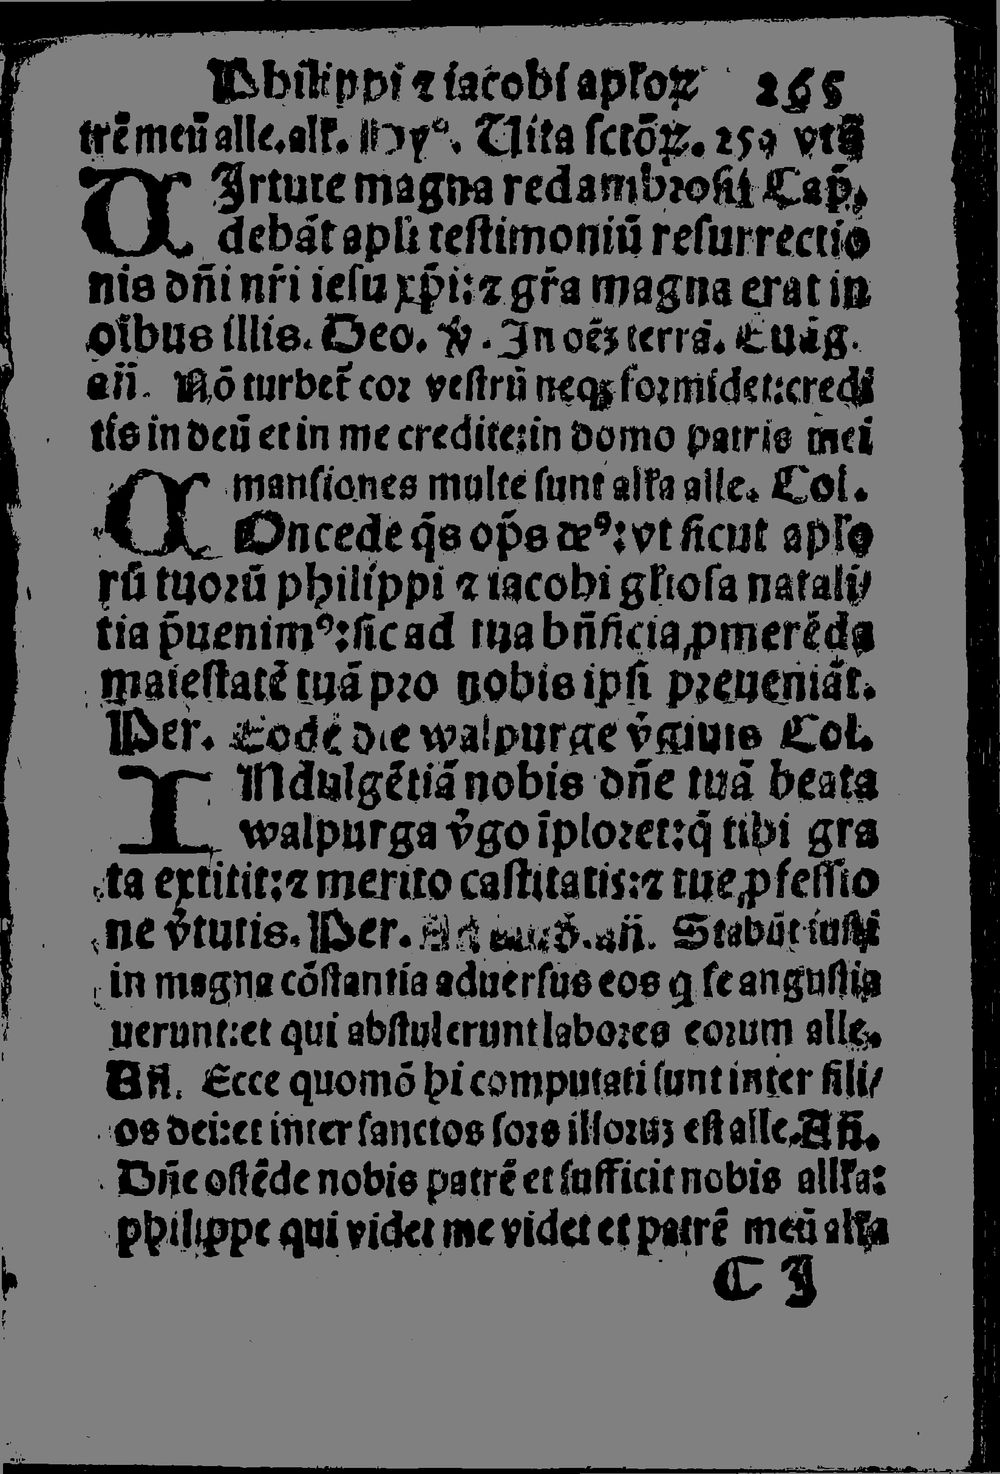 Philippi ⁊ iacobi apl'oꝝ 265
trē meū alle. alľ. Hyᵒ. Uita sctōꝝ. 259 vtō
VIrtute magna reddambrosij Cap̄.
debāt apl'i testimoniū resurrectio
nis dn̄i nr̄i iesu xp̄i: ⁊ gr̄a magna erat in
oībus illis. Deo. ℣. In oēꝫ terrā. Euāg.
an̄. Nō turbet̄ cor vestrū neqꝫ formidet: credi
tis in deū et in me credite: in domo patris mei
mansiones multe sunt alľa alle. Col.
COncede q̄s op̄s deꝰ: vt sicut apl'o
rū tuorū philippi ⁊ iacobi gl'iosa natali/
tia p̄uenimꝰ: sic ad tua bn̄ficia ꝓmerēda
maiestatē tuā pro nobis ipsi preueniāt.
Per. Eodē die walpurge v̄ginis Col.
INdulgētiā nobis dn̄e tuā beata
walpurga v̄go īploret: q̄ tibi gra
ta extitit: ⁊ merito castitatis: ⁊ tue ꝓfessio
ne v̄tutis. Per. an̄. Stabūt iusti
in magna cōstantia aduersus eos q se angustia
uerunt: et qui abstulerunt labores eorum alle.
An̄. Ecce quomō hi computati sunt inter fili/
os dei: et inter sanctos sors illoruꝫ est alle. An̄.
Dn̄e ostēde nobis patrē et sufficit nobis allľa:
philippe qui videt me videt et patrē meū alľa
C J